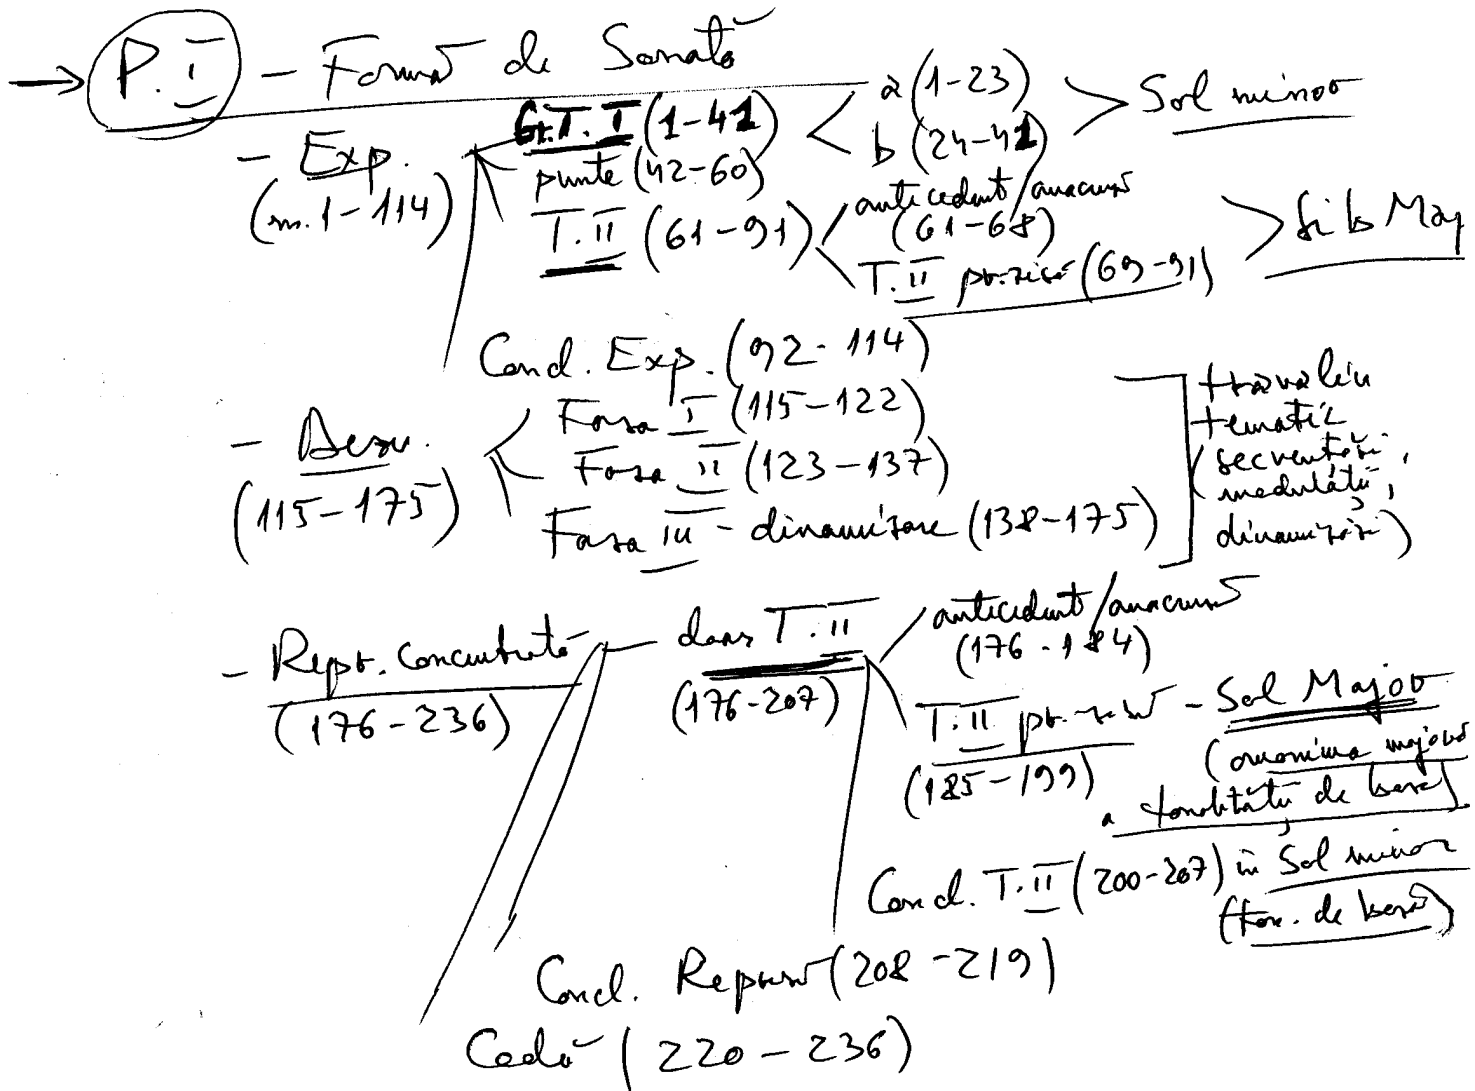 → P. I - Formă de Sonată
- Exp. (m. 1-114)
Gr. T. I (1-41) < a (1-23)
b (24-41) > Sol minor
punte (42-60)
T. II (61-91) antecedent/anacruză (61-68)
T. II pr. zisă (69-91) > Si b Maj
Concl. Exp. (92-114)
- Dezv. (115-175)
Faza I (115-122)
Faza II (123-137)
Faza III - dinamizare (138-175)
travaliu
tematic
(secvențări,
modulații,
dinamizări)
- Repr. Concentrată (176-236)
doar T. II (176-207)
antecedent/anacruză
(176-184)
T. II pr. zisă - Sol Major
(185-199)
(omonima majoră
a tonalității de bază)
Concl. T. II (200-207) în Sol minor
(ton. de bază)
Concl. Repriză (208-219)
Codă (220-236)